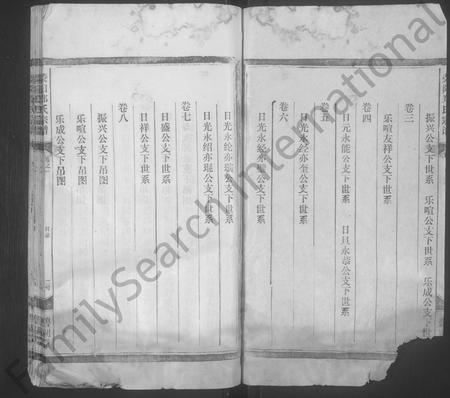 卷三
振兴公支下世系 乐喧公支下世系 乐成公支下世系
乐喧友祥公支下世系
卷四
日元永能公支下世系 日永恭公支下世系
卷五
日光永经亦奎公支下世系
卷六
日光永经亦公支下世系
日光永纶亦公支下世系
卷七
日光永绍亦琨公支下世系
日盛公支下世系
卷八
日祥公支下世系
振兴公支下吊图
乐喧公支下吊图
乐成公支下吊图
氏宗谱
FamilySearch International